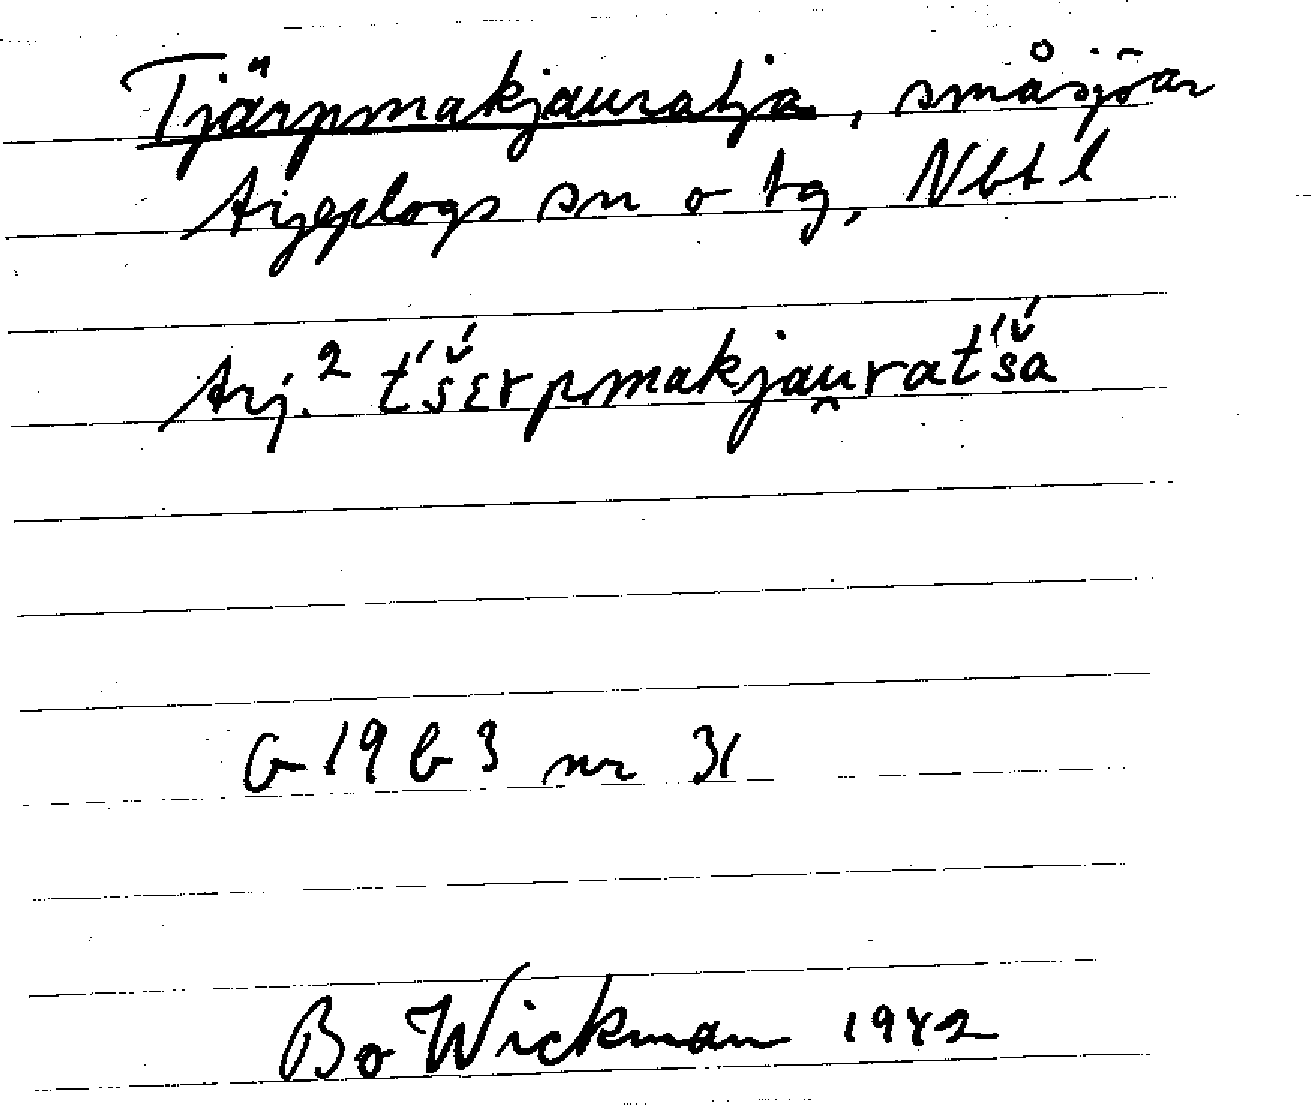 Tjärpmakjauratja, småsjöar
Arjeplogs sn o tg, Nbtl
Arj.² t́š́ɛrpmakjau̯rat́š́a
G 19 b 3 nr 31
Bo Wickman 1942